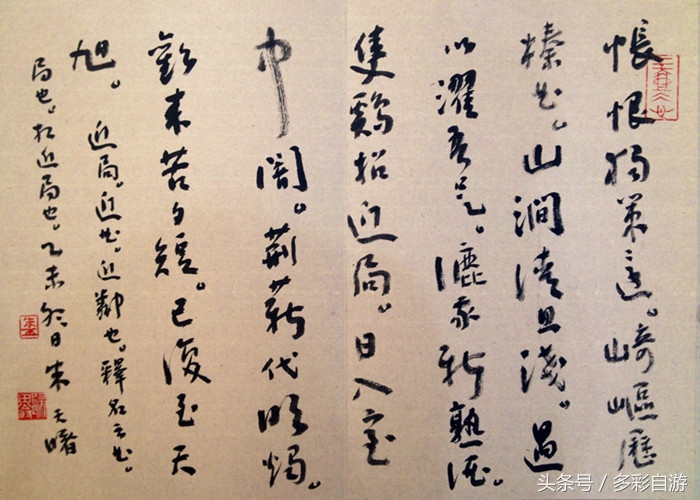 悵恨獨策還。崎嶇歷
榛曲。山澗清且淺。遇
以濯吾足。漉我新熟酒。
隻鷄招近局。日入室
中闇。荊薪代明燭。
歡來苦夕短。已復至天
旭。近局。近曲。近鄰也。釋名云曲。
局也。招近局也。乙未秋日朱天曙
头条号 / 多彩自游